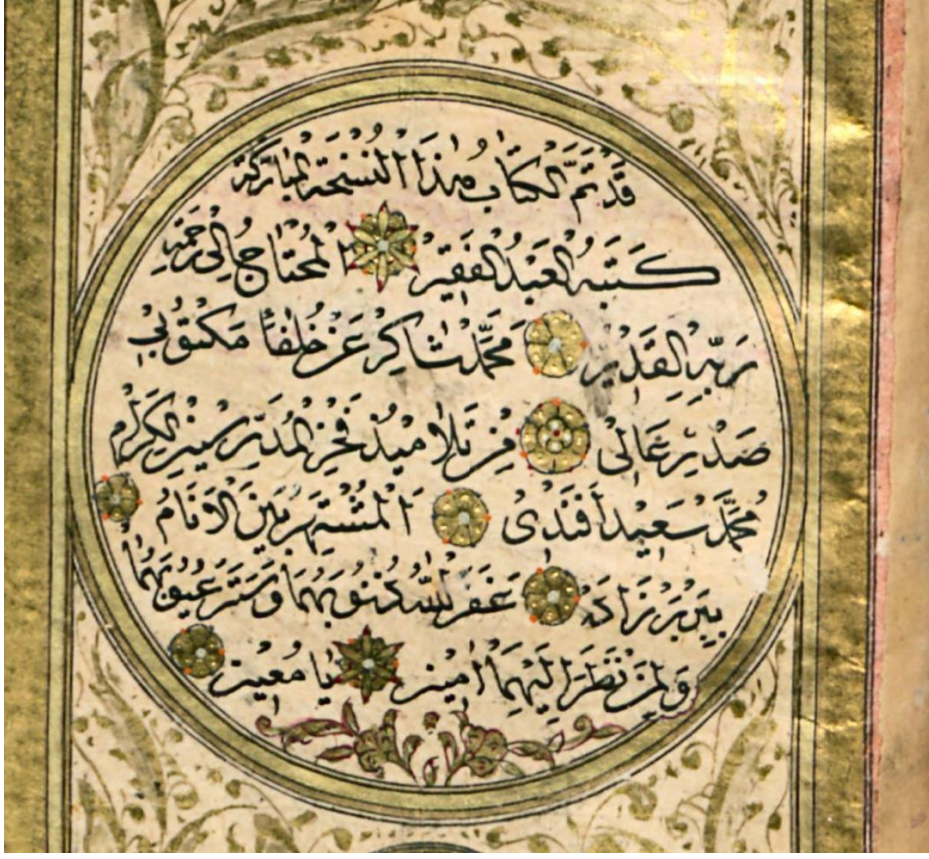 قَدْ تَمَّ الْكِتَابُ هٰذَا النُّسْخَةِ الْمُبَارَكَةِ
كَتَبَهُ الْعَبْدُ الْفَقِيرُ الْمُحْتَاجُ اِلٰى رَحْمَةِ
رَبِّهِ الْقَدِيْرِ مُحَمَّدْ شَاكِرْ عَنْ خُلَفَاءِ مَكْتُوبِیِ
صَدْرِ عَالٰى مِنْ تَلَامِيْذِ فَخْرِ الْمُدَرِّسِيْنَ الْكِرَامِ
مُحَمَّدْ سَعِيْد اَفَنْدٖى اَلْمُشْتَهِرْ بَيْنَ الْاَنَامِ
بِيَرْبَرْزَادَه غَفَرَ اللّٰهُ ذُنُوبَهُمَا وَسَتَرَ عُيُوبَهُمَا
وَلِمَنْ نَظَرَ اِلَيْهِمَا اٰمِيْن يَا مُعِيْن